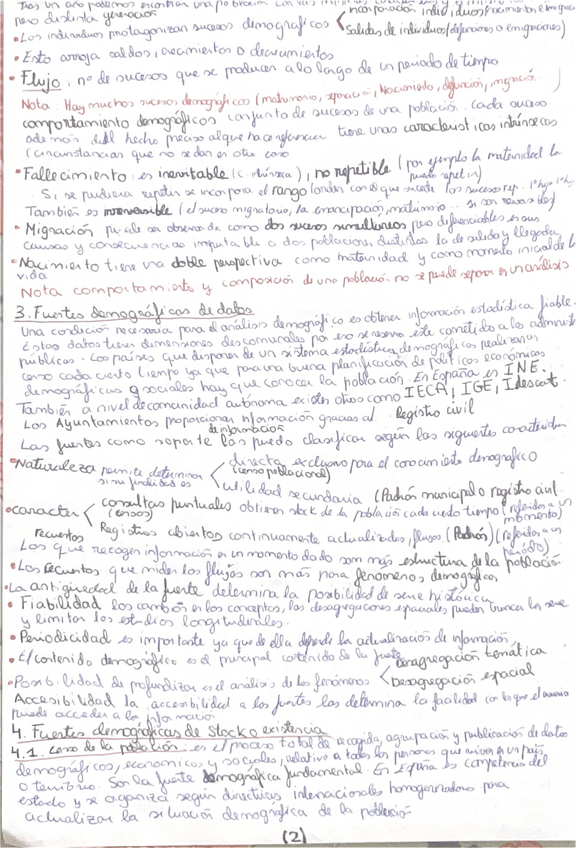 Tras un año podemos encontrar una población con
pero distinta generación
incorporación individuos (nacimientos e
• Los individuos protagonizan sucesos demográficos < Salidas de individuos (defunciones o emigraciones)
• Esto arroja saldos, crecimientos o decrecimientos
• Flujo: nº de sucesos que se producen a lo largo de un periodo de tiempo
Nota: Hay muchos sucesos demográficos (matrimonio, separación, Nacimiento, defunción, migración...)
comportamiento demográfico: conjunto de sucesos de una población. Cada suceso
además del hecho preciso al que hace referencia tiene unas características intrínsecas
(circunstancias que no se dan en otro caso
• Fallecimiento: es inevitable (c. intrínseca), no repetible (por ejemplo la maternidad
puede repetir)
Si se pudiera repetir se incorpora el rango (orden con el que sucede los sucesos rep. 1º hijo
También es irreversible (el suceso migratorio, la emancipación, matrimonio... si son reversibles)
• Migración puede ser observada como dos sucesos simultáneos pero diferenciables en sus
causas y consecuencias imputable a dos poblaciones distintas la de salida y llegada
• Nacimiento tiene una doble perspectiva como maternidad y como momento inicial de la
vida
Nota comportamiento y composición de una población no se puede separar en un análisis
3. Fuentes demográficas de datos
Una condición necesaria para el análisis demográfico es obtener información estadística fiable.
Estos datos tienen dimensiones descomunales por eso se reserva este cometido a las administ
públicas. Los países que disponen de un sistema estadística demográficos realizan un
censo cada cierto tiempo ya que para una buena planificación de políticas económicas
demográficas y sociales hay que conocer la población. En España es INE.
También a nivel de comunidad autónoma existen otros como IECA, IGE, Idescat.
Los Ayuntamientos proporcionan información gracias al Registro civil
de información
Las fuentes como soporte las puedo clasificar según las siguientes características
• Naturaleza permite determinar si su finalidad es < directa exclusivo para el conocimiento demográfico
(censo poblacional)
utilidad secundaria (Padrón municipal o registro civil
• caracter < consultas puntuales obtienen stock de la población cada cierto tiempo (referidos a un
(censos) momento)
recuentos Registros abiertos continuamente actualizados, flujos (Padrón) (referidos a un
periodo)
Los que recogen información en un momento dado son más estructura de la población
• Los Recuentos que miden los flujos son más para fenómenos demográficos
• La antigüedad de la fuente determina la posibilidad de serie histórica
• Fiabilidad los cambios en los conceptos, las desagregaciones espaciales pueden truncar la serie
y limitar los estudios longitudinales.
• Periodicidad es importante ya que de ella depende la actualización de información,
• El contenido demográfico es el principal contenido de la fuente
• Posibilidad de profundizar en el análisis de los fenómenos < desagregación temática
Desagregación espacial
Accesibilidad la accesibilidad a las fuentes las determina la facilidad con la que el usuario
puede acceder a la información
4. Fuentes demográficas de stock o existencia
4.1. censo de la población: es el proceso total de recogida, agrupación y publicación de datos
demográficos, económicos y sociales, relativo a todas las personas que viven en un país
o territorio. Son la fuente demográfica fundamental. En España es competencia del
estado y se organiza según directrices internacionales homogenizadoras para
actualizar la situación demográfica de la población
(2)